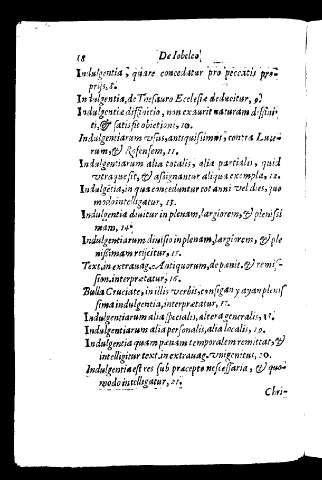 18 De Iobeleo
Indulgentia, quare concedatur pro peccatis pro-
prijs, 8.
Indulgentia, de Thesauro Ecclesiæ deducitur, 9.
Indulgentiæ distinctio, non exaurit naturam
ti, & satisfactioni, 10.
Indulgentiarum vsus, antiquissimus, contra Lute-
rum, & Rofensem, 11.
Indulgentiarum alia totalis, alia partialis, quid
vtraque sit, & assignantur aliqua exempla, 12.
Indulgētia, in qua conceduntur tot anni vel dies, quo
modo intelligatur, 13.
Indulgentia diuitur in plenam, largiorem, & plenissi
mam, 14.
Indulgentiarum diuisio in plenam, largiorem, & ple
nissimam reijcitur, 15.
Text. in extrauag. Antiquorum, de pœnit. & remis-
sion. interpretatur, 16.
Bulla Cruciatæ, in illis verbis, consigan y ayan pleniss
sima indulgentia, interpretatur, 17.
Indulgentiarum alia specialis, altera generalis, 18.
Indulgentiarum alia personalis, alia localis, 19.
Indulgentia quam pœnam temporalem remittat, &
intelligitur text. in extrauag. vnigenitus, 20.
Indulgentia est res sub præcepto necessaria, & quo-
modo intelligatur, 21.
Chri-